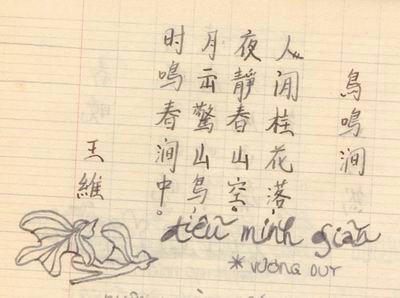 鳥鳴涧
人闲桂花落,
夜靜春山空。
月出驚山鳥,
时鳴春涧中。
王維
điểu minh giản
* VƯƠNG DUY